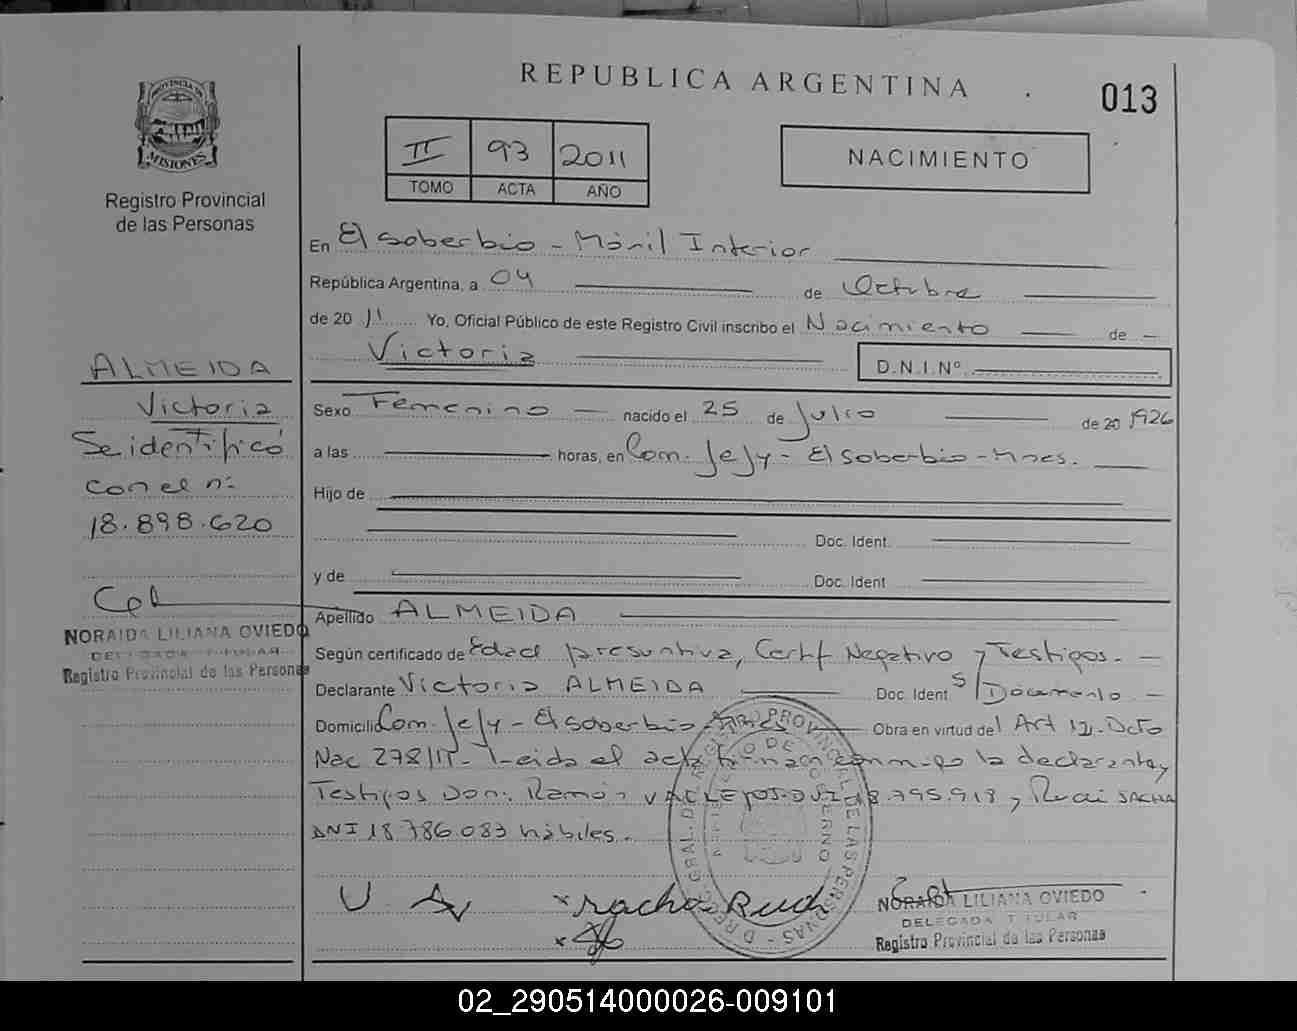 REPUBLICA ARGENTINA
013
II 93 2011
TOMO ACTA AÑO
NACIMIENTO
PROVINCIA DE
MISIONES
Registro Provincial
de las Personas
En El soberbio - Móvil Interior
República Argentina, a 04 de Octubre
de 2011 Yo, Oficial Público de este Registro Civil inscribo el Nacimiento de
Victoria
D.N.I.Nº
Sexo Femenino nacido el 25 de Julio de 20 1926
a las horas, en Com. Jejy - El soberbio - Mnes.
Hijo de
Doc. Ident.
y de Doc. Ident
Apellido ALMEIDA
Según certificado de Edad presuntiva, Certif Negativo y Testigos.
Declarante Victoria ALMEIDA Doc. Ident S/Documento
Domicilio Com. Jejy - El soberbio Obra en virtud del Art 12. Dcto
Nac 278/11 - Leida el acta firman conmigo la declarante y
Testigos Don: Ramón VALLEJOS DNI 18.795.918 y Ruai SACHA
DNI 18786.083 hábiles.
ALMEIDA
Victoria
Se identificó
con el nº
18.898.620
NORAIDA LILIANA OVIEDO
DELEGADA TITULAR
Registro Provincial de las Personas
NORAIDA LILIANA OVIEDO
DELEGADA TITULAR
Registro Provincial de las Personas
02_290514000026-009101